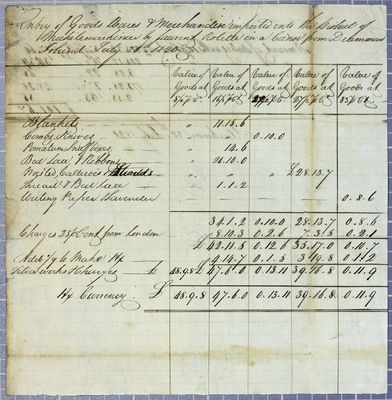 Entry of Goods Wares & Merchandise imported into the District of
Michilimackinac by Laurent Rolette in a Canoe from Drummond
Island July 1820
Value of Goods at
Value of Goods at
Value of Goods at
Value of Goods at
Value of Goods at
Blankets " 11.18.6
Combs, Knives " 0.10.0
Pomatum, Snuff boxes " 14.6
Bed Lace & Ribbons "
Worsted, Calicoes & " " £28.13.7
Thread & Bed Lace " 1.1.2
Writing Paper 0.8.6
34.1.2 0.10.0 28.13.7 0.8.6
Charges 25 p Cent from London 8.10.3 0.2.6 7.3.5 0.2.1
£ 42.11.5 0.12.6 35.17.0 0.10.7
Add 1/9 to Make Hx 4.14.7 0.1.5 3.19.8 0.1.2
Silver works & Charges £ 48.9.8 47.6.0 0.13.11 39.16.8 0.11.9
Hx Currency £ 48.9.8 47.6.0 0.13.11 39.16.8 0.11.9